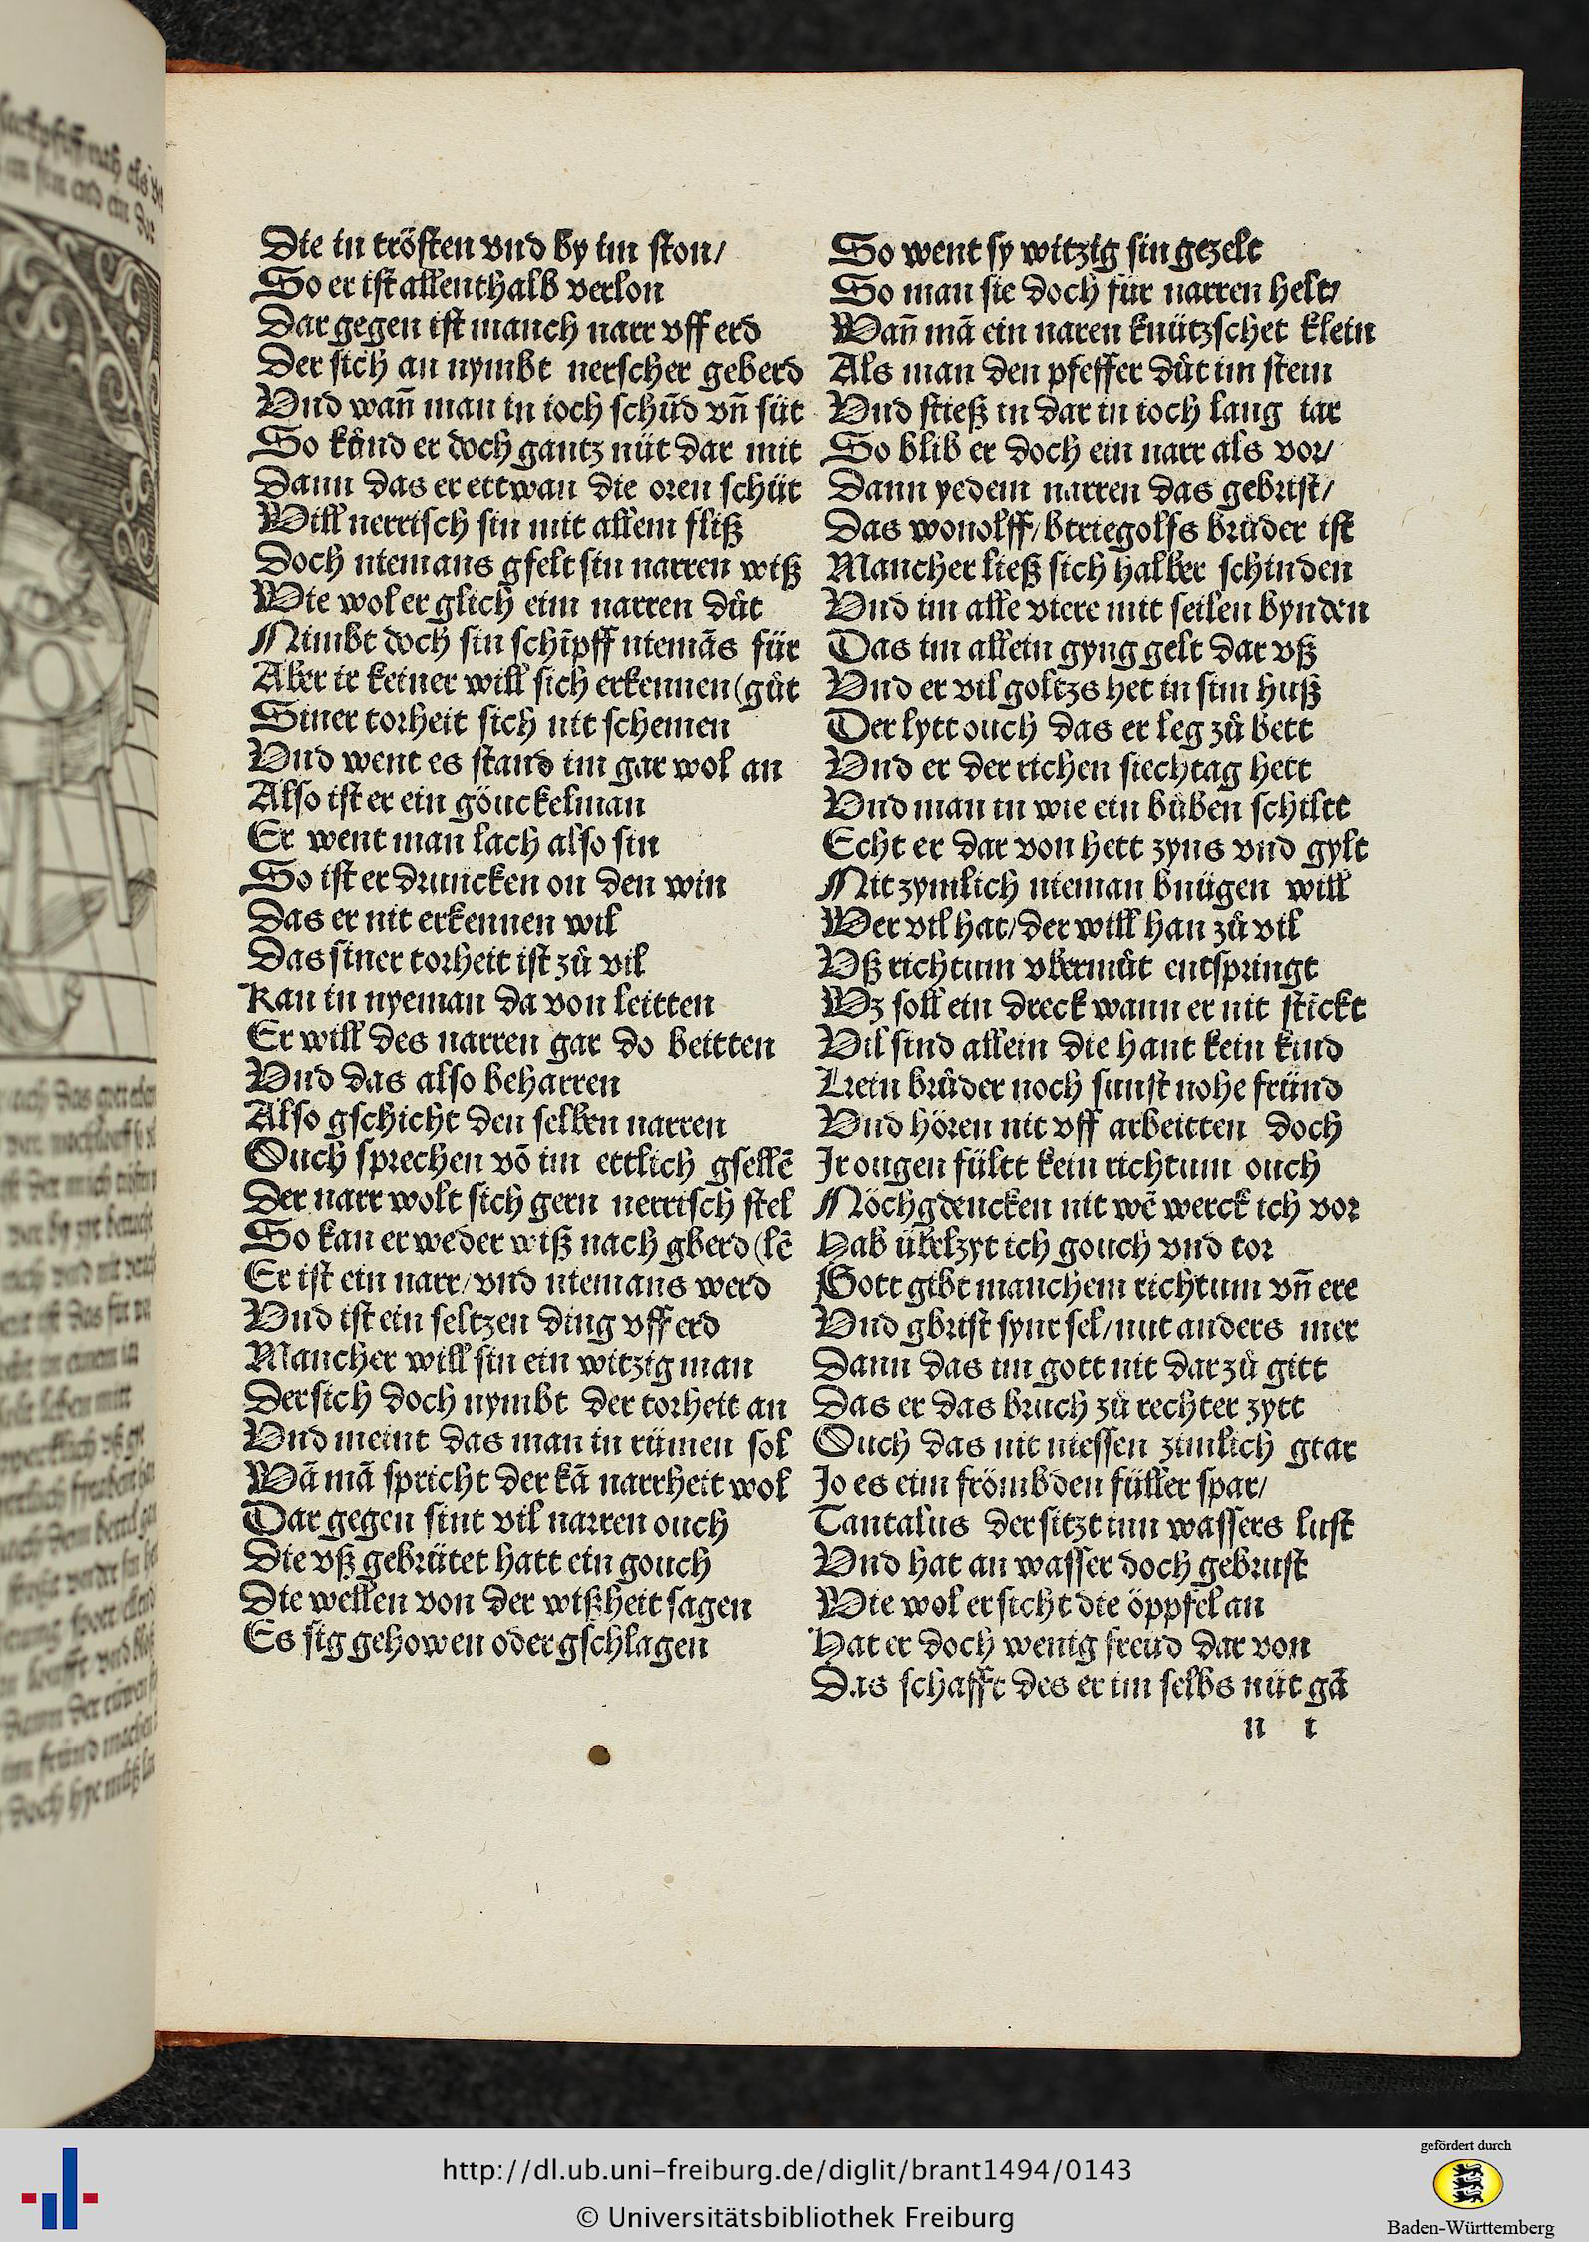 Die in trösten vnd by im ston/
So er ist allenthalb verlon
Dar gegen ist manch narr vff erd
Der sich an nymbt nerscher geberd
Vnd wañ man in ioch schūd vñ süt
So kånd er doch gantz nüt dar mit
Dann das er ettwan die oren schüt
Will nerrisch sin mit allem fliß
Doch niemans gfelt sin narren wiß
Wie wol er glich eim narren důt
Nimbt doch sin schīpff niemās für
Aber ir keiner will sich erkennen (gůt
Siner torheit sich nit schemen
Vnd went es stand im gar wol an
Also ist er ein göuckelman
Er went man lach also sin
So ist er druncken on den win
Das er nit erkennen wil
Das siner torheit ist zů vil
Kan in nyeman da von leitten
Er will des narren gar do beitten
Vnd das also beharren
Also gschicht den selben narren
Ouch sprechen vō im ettlich gsellē
Der narr wolt sich gern nerrisch stel
So kan er weder wiß nach gberd (lē
Er ist ein narr/vnd niemans werd
Vnd ist ein seltzen ding vff erd
Mancher will sin ein witzig man
Der sich doch nymbt der torheit an
Vnd meint das man in rümen sol
Wā mā spricht der kā narrheit wol
Dar gegen sint vil narren ouch
Die vß gebrütet hatt ein gouch
Die wellen von der wißheit sagen
Es sig gehowen oder gschlagen
So went sy witzig sin gezelt
So man sie doch für narren helt/
Wañ mā ein naren knützschet klein
Als man den pfeffer důt im stein
Vnd stieß in dar in ioch lang iar
So blib er doch ein narr als vor/
Dann yedem narren das gebrist/
Das wonolff/btriegolfs brůder ist
Mancher ließ sich halber schinden
Vnd im alle viere mit seilen bynden
Das im allein gyng gelt dar vß
Vnd er vil goltzs het in sim huß
Der lytt ouch das er leg zů bett
Vnd er der richen siechtag hett
Vnd man in wie ein bůben schiltt
Echt er dar von hett zyns vnd gylt
Mit zymlich nieman bnügen will
Wer vil hat/der will han zů vil
Vß richtum vbermůt entspringt
Wz soll ein dreck wann er nit stickt
Vil sind allein die hant kein kind
Kein brůder noch sunst nohe fründ
Vnd hören nit vff arbeitten doch
Ir ougen füllt kein richtum ouch
Nöch gdencken nit wē werck ich vor
Hab übelzyt ich gouch vnd tor
Gott gibt manchem richtum vñ ere
Vnd gbrist synr sel/nut anders mer
Dann das im gott nit dar zů gitt
Das er das bruch zů rechter zytt
Ouch das nit niessen zimlich gtar
Jo es eim frömbden füller spar/
Tantalus der sitzt inn wassers lust
Vnd hat an wasser doch gebrust
Wie wol er sicht die öppfel an
Hat er doch wenig freüd dar von
Das schafft des er im selbs nüt gā
n i
http://dl.ub.uni-freiburg.de/diglit/brant1494/0143
© Universitätsbibliothek Freiburg
gefördert durch
Baden-Württemberg